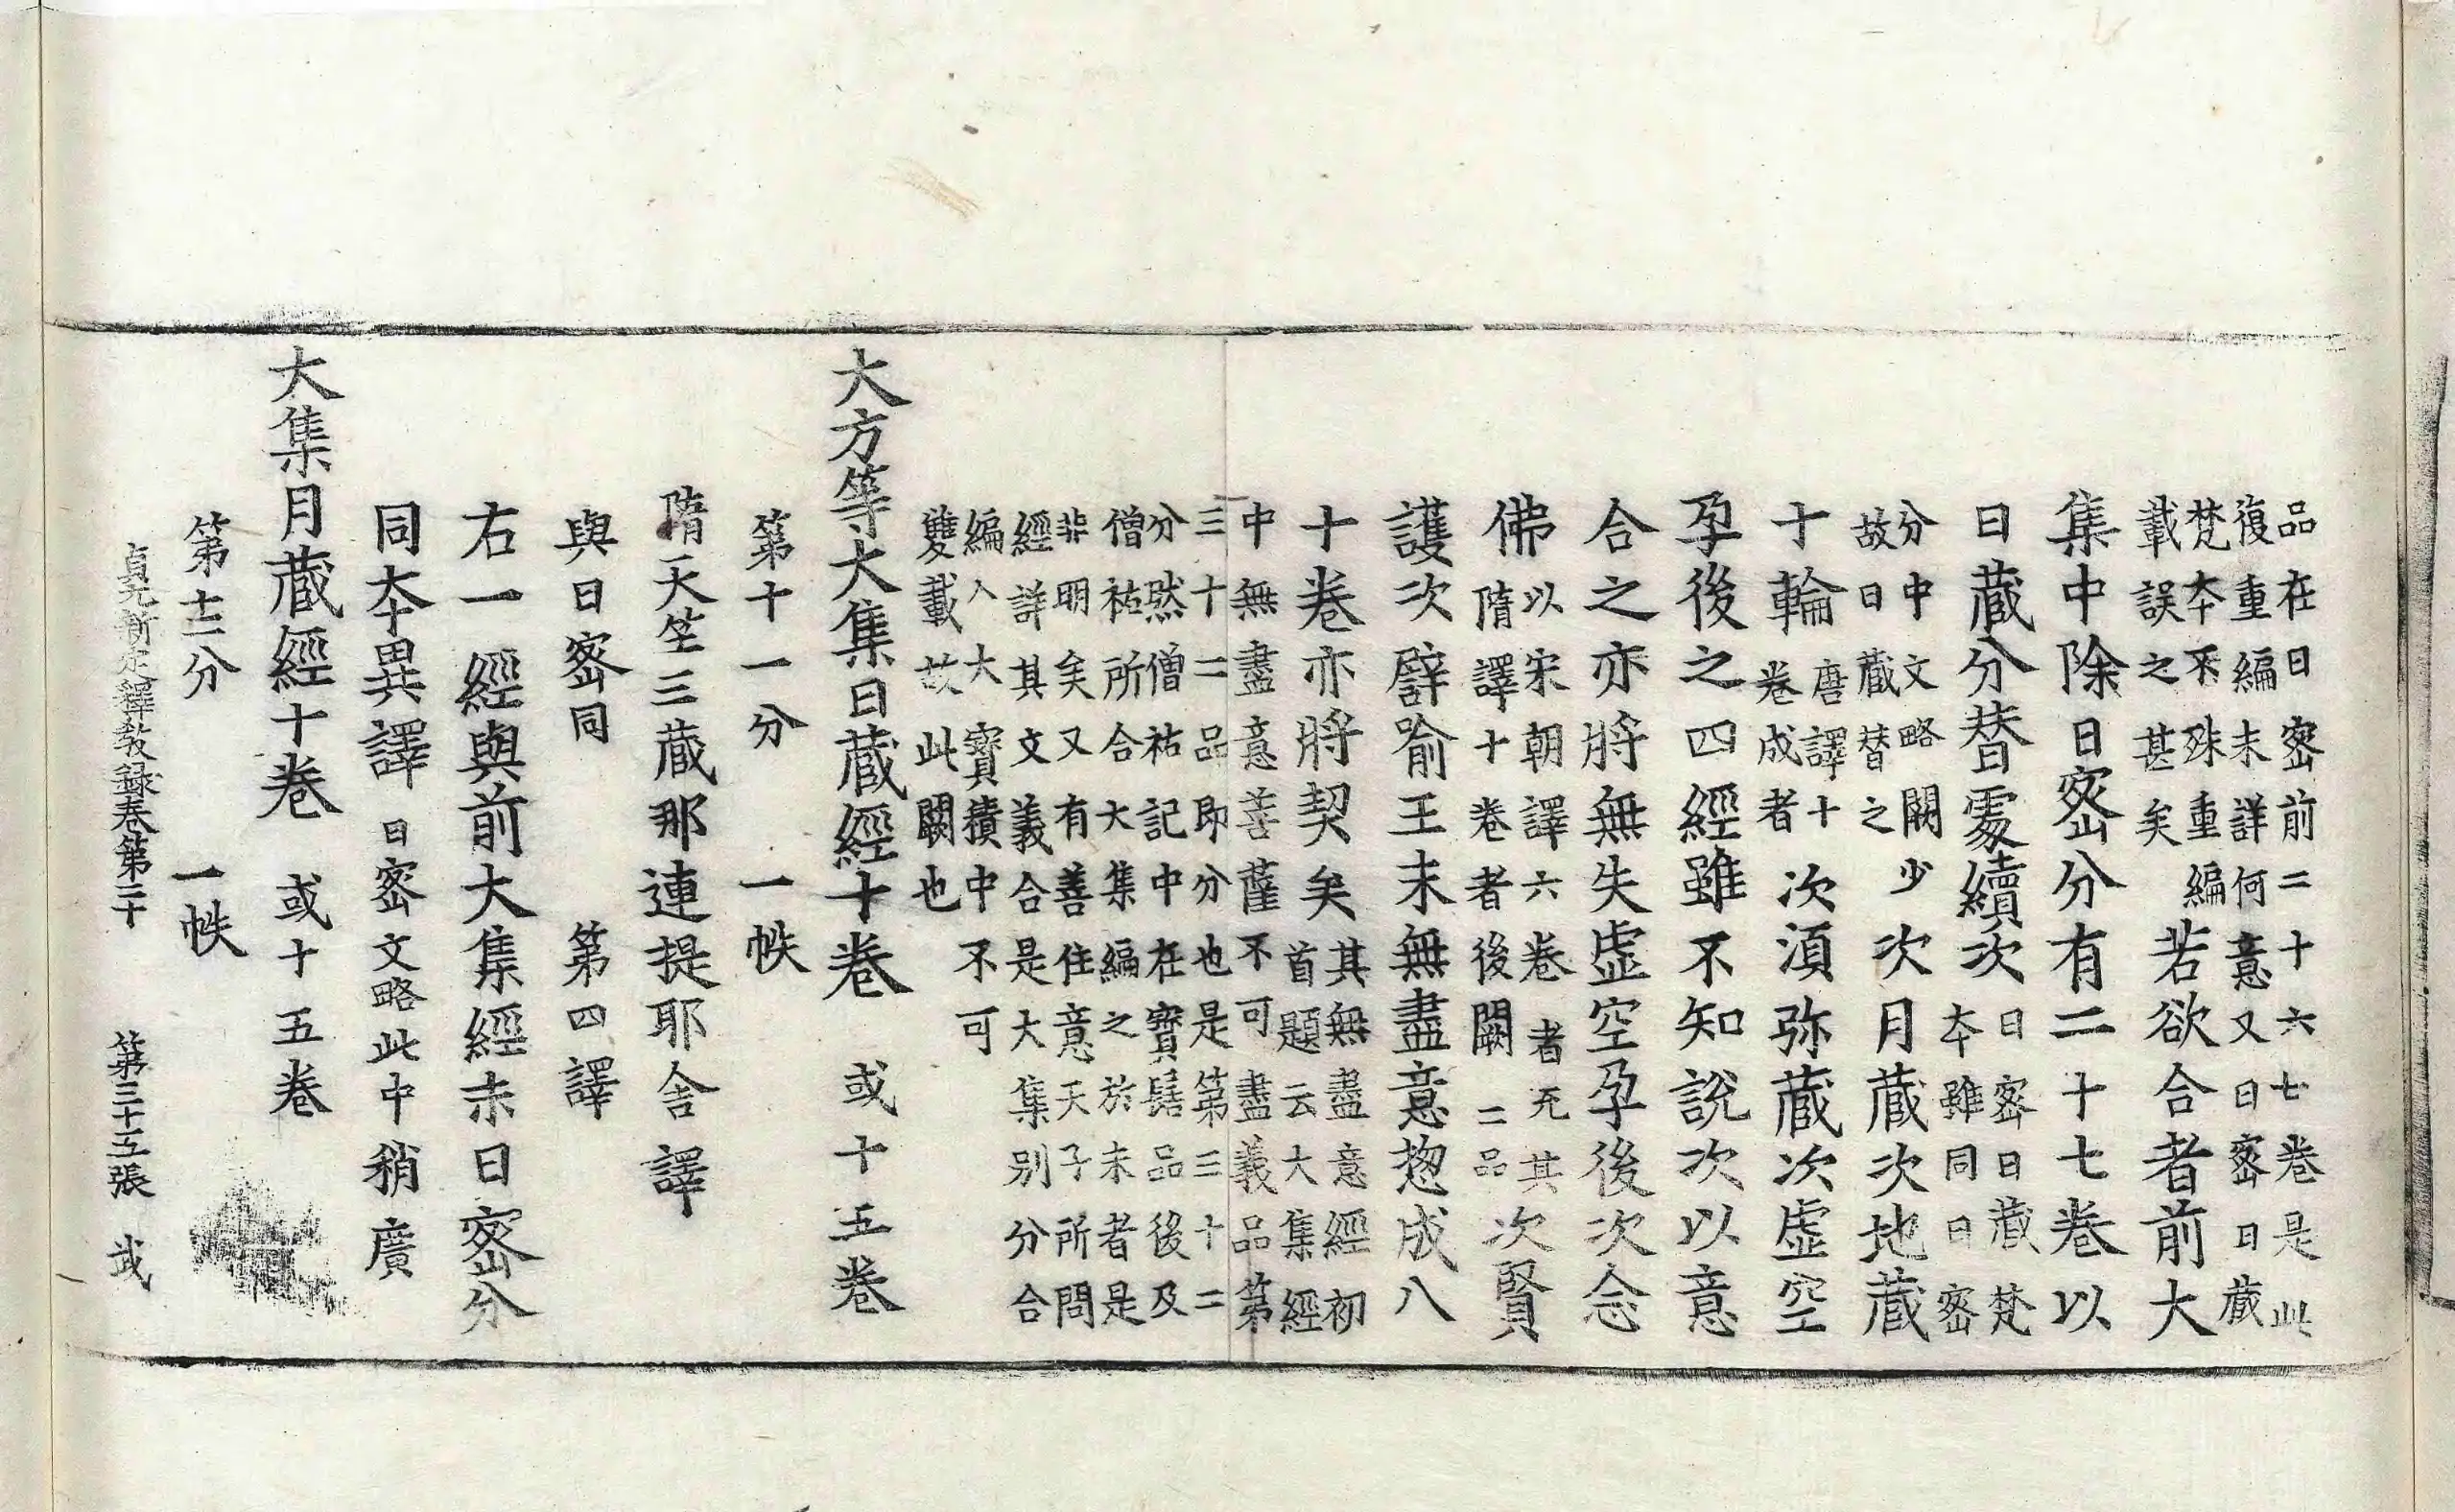 品在日密前二十六七卷是此
復重編未詳何意又日密日藏
梵夲不殊重編
載誤之甚矣
若欲合者前大
集中除日密分有二十七卷以
日藏分替處續次
日密日藏梵
夲雖同日密
分中文略闕少
故日藏替之
次月藏次地藏
十輪
唐譯十
卷成者
次湏弥藏次虛空
孕後之四經雖不知說次以意
合之亦將無失虛空孕後次念
佛
以宋朝譯六卷者充其
隋譯十卷者後闕二品
次賢
護次譬喻王末無盡意揔成八
十卷亦將契矣
其無盡意經初
首題云大集經
中無盡意菩薩不可盡義品第
三十二品即分也是第三十二
分然僧祐記中在寳髻品後及
僧祐所合大集編之於末者是
非明矣又有善住意天子所問
經詳其文義合是大集別分合
編入大寳積中不可
雙載故此闕也
大方等大集日藏經十卷 或十五卷
第十一分 一帙
隋天竺三藏那連提耶舍譯
與日密同 第四譯
右一經與前大集經未日密分
同夲異譯 日密文略此中稍廣
大集月藏經十卷 或十五卷
第十二分 一帙
貞元新定釋教錄卷第二十 第三十五張 武